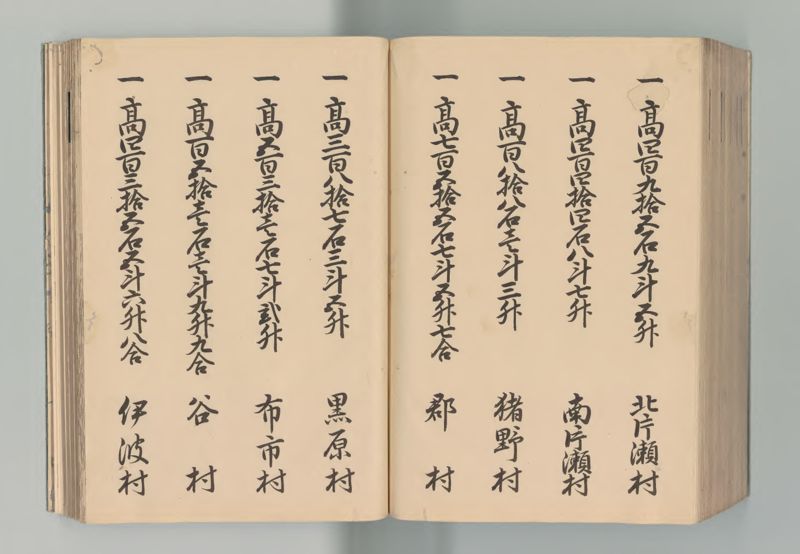 一 高四百九拾五石九斗五升 北片瀬村
一 高四百四拾四石八斗七升 南片瀬村
一 高百八拾八石壱斗三升 猪野村
一 高七百五拾五石七斗五升七合 郡村
一 高三百八拾七石三斗五升 黒原村
一 高五百三拾壱石七斗弐升 布市村
一 高百五拾壱石壱斗九升九合 谷村
一 高四百三拾五石五斗六升八合 伊波村